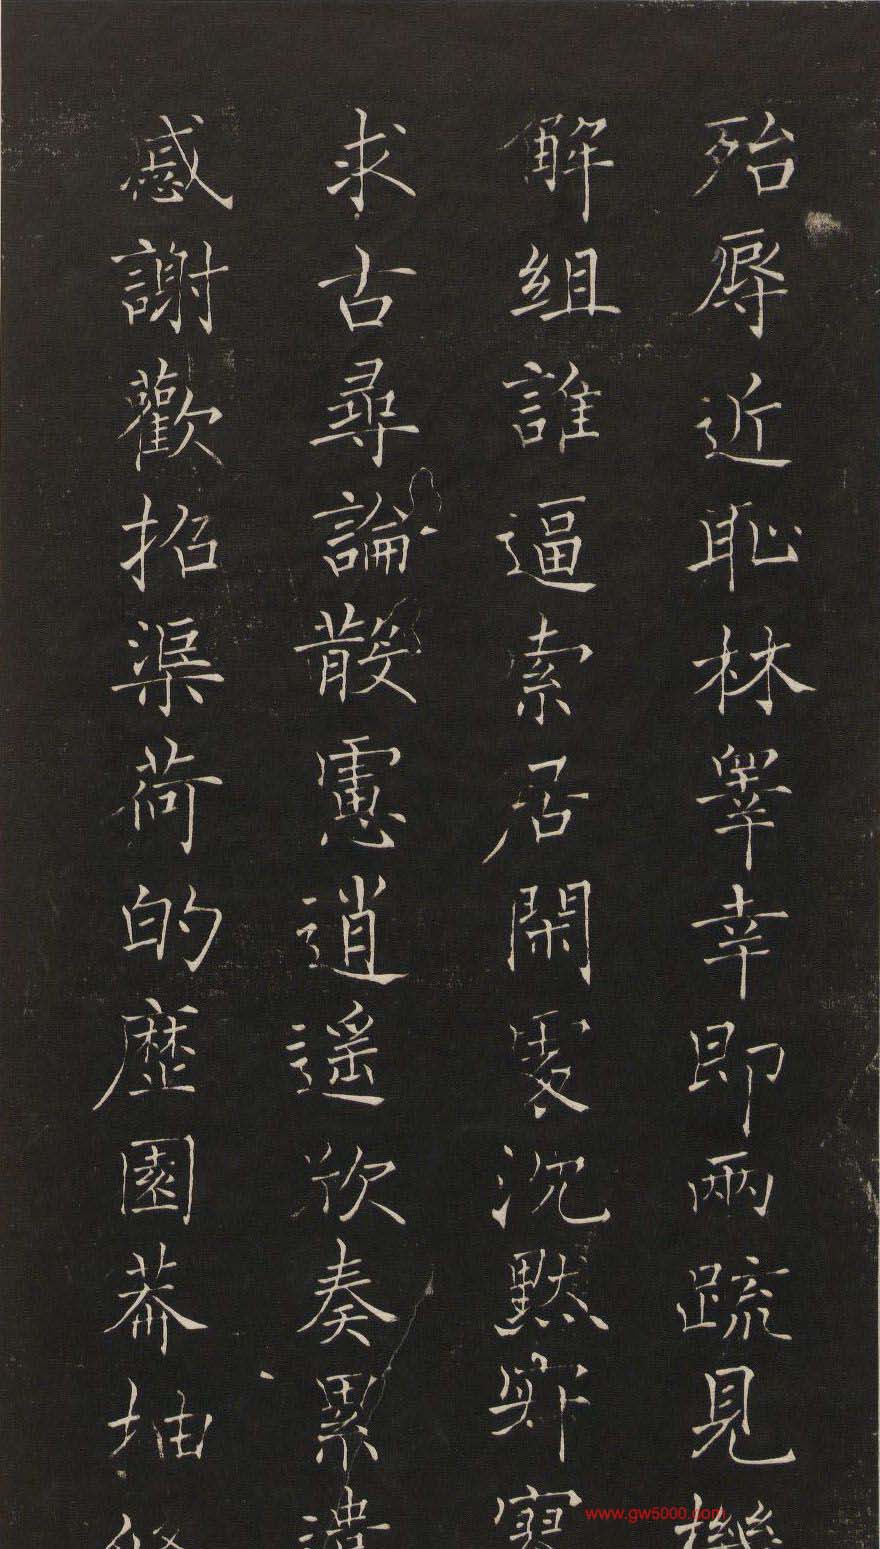 殆辱近恥林睪幸即兩疏見機
解組誰逼索居閑處沈默寂寥
求古尋論散慮逍遙欣奏累遣
慼謝歡招渠荷的歷園莽抽條
www.gw5000.com